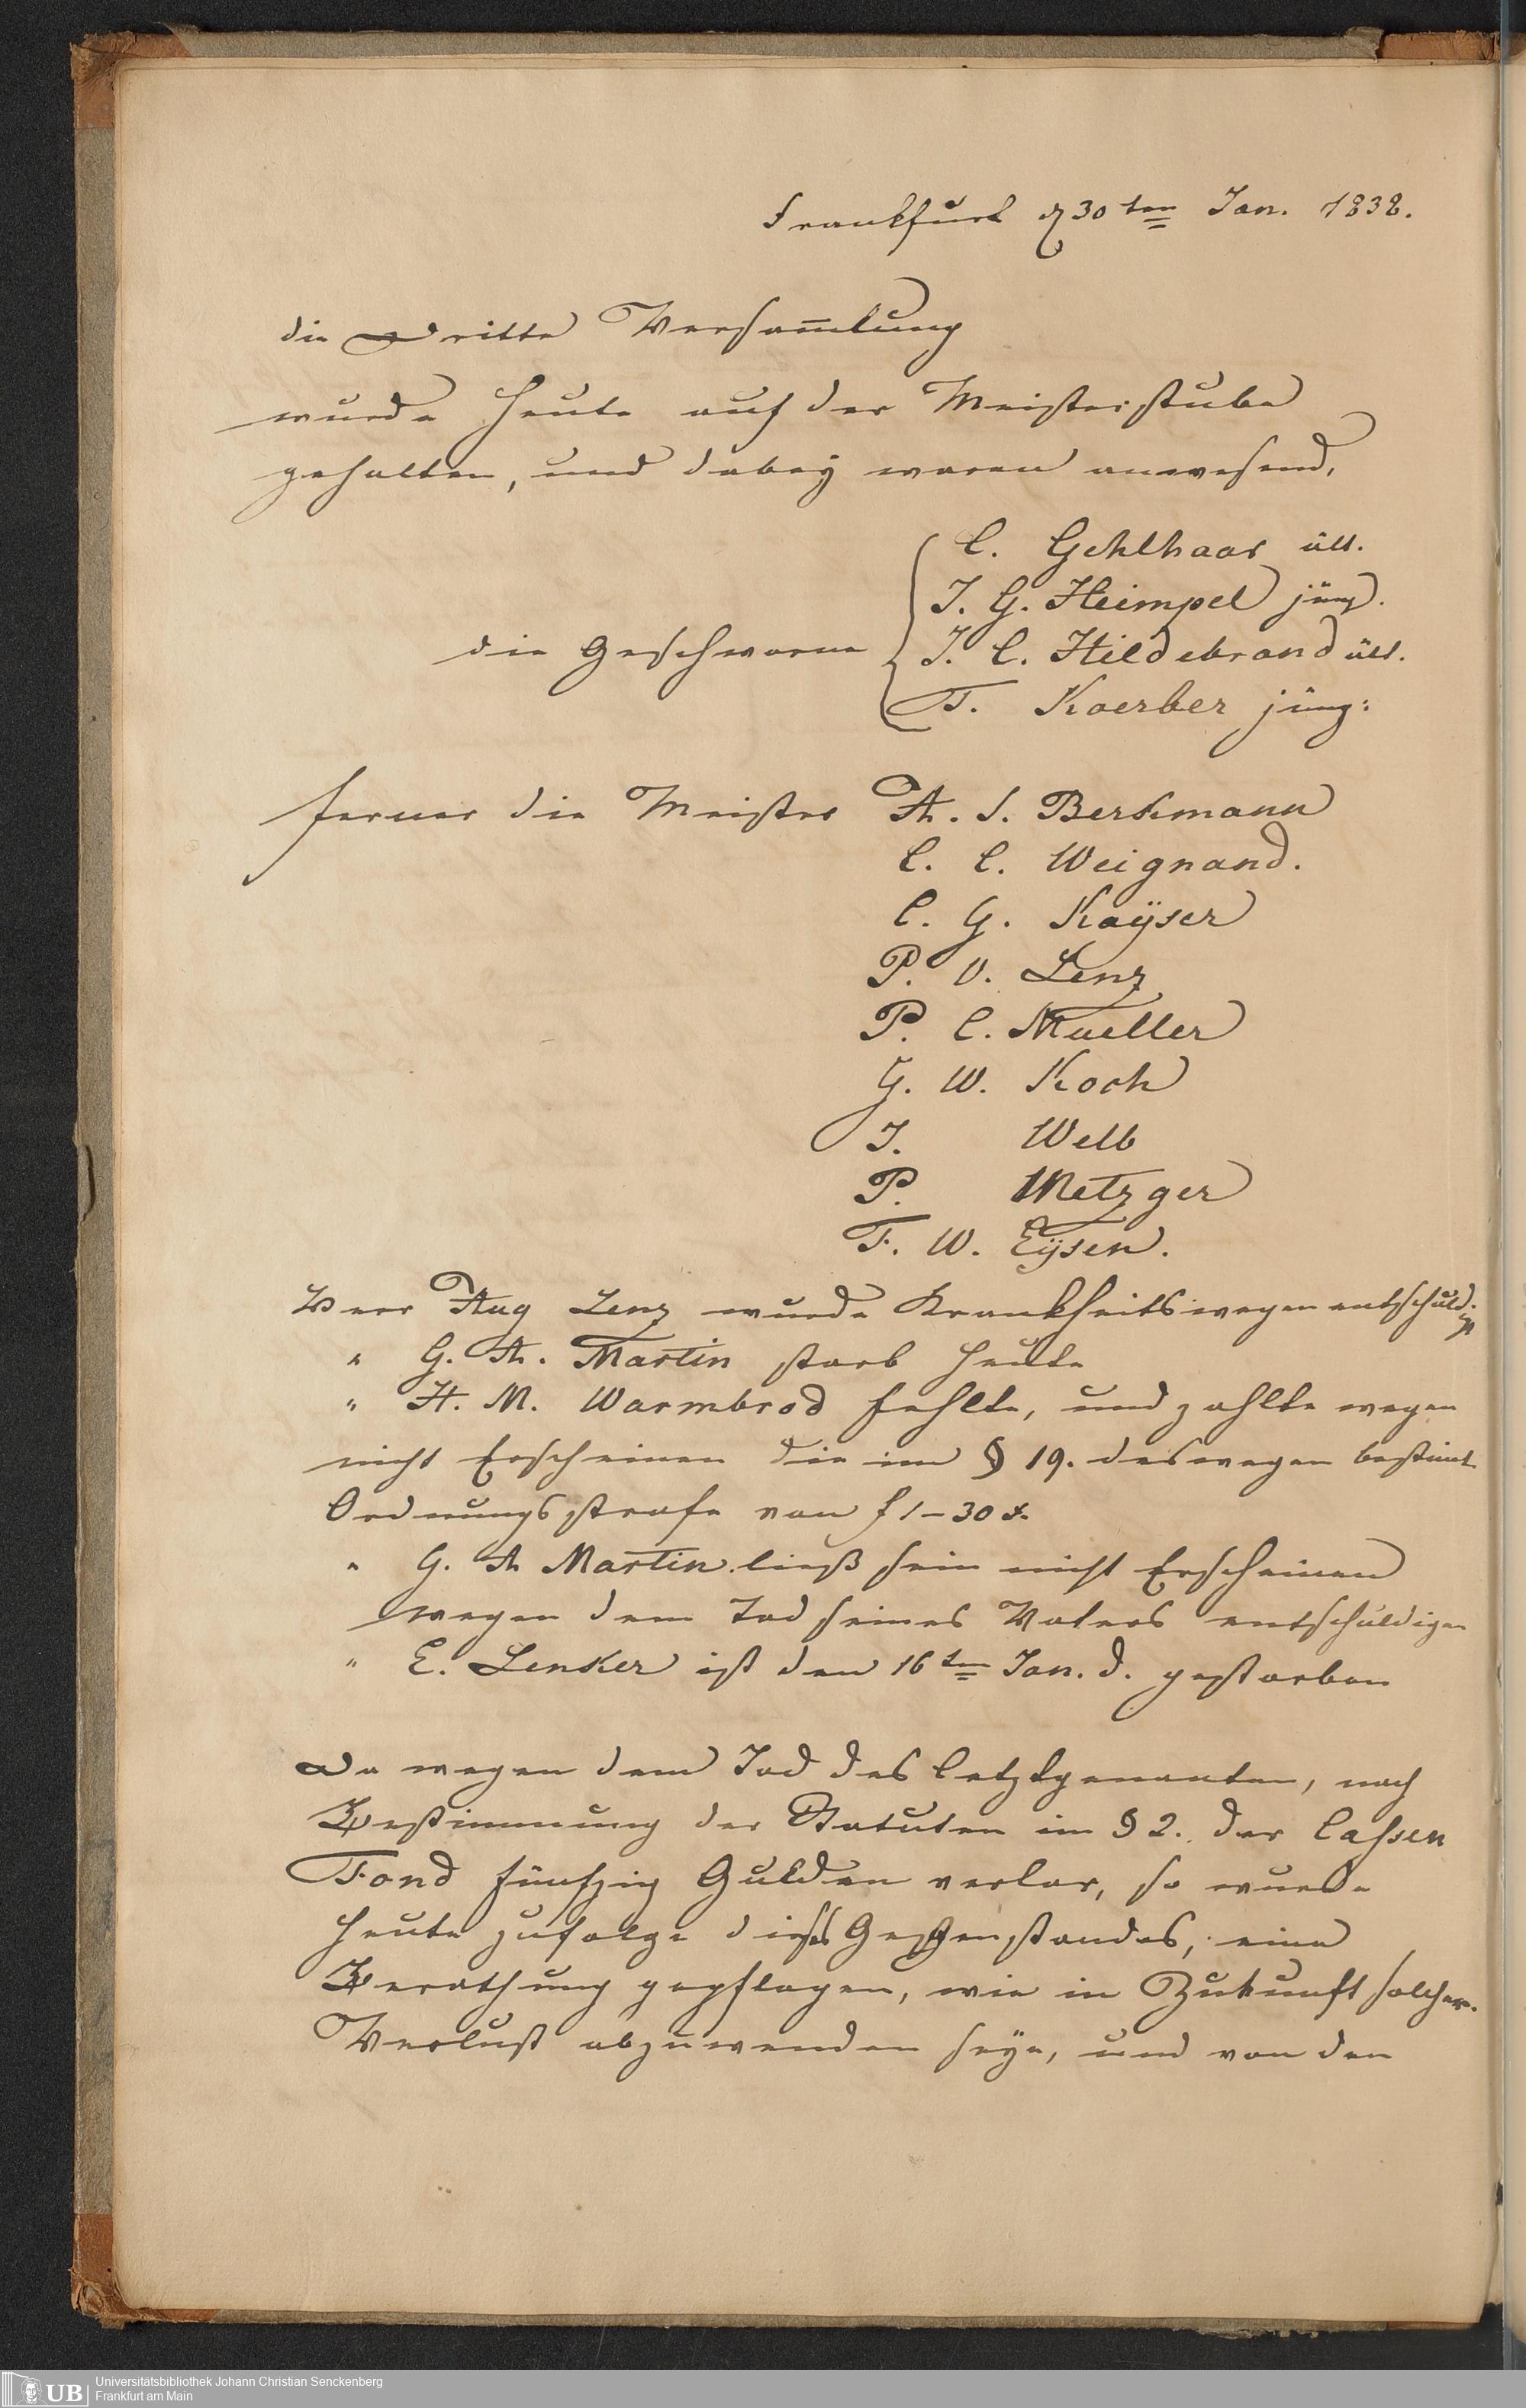 Frankfurt d 30ten Jan. 1838.
die Dritte Versam̅lung
wurde heute auf der Meisterstube
gehalten, und dabeÿ waren anwesend,
C. Gehlhaar ält.
J. G. Heimpel jüng.
die Geschworne J. C. Hildebrand ält.
F. Koerber jüng:
ferner die Meister A. S. Berkmann
C. C. Weignand.
C. G. Kaÿser
P. V. Lenz
P. C. Mueller
G. W. Koch
J. Welb
P. Metzger
F. W. Eÿsen.
Herr Aug Lenz wurde Krankheits wegen entschuld.
" G. A. Martin starb heute
" H. M. Warmbrod fehlte, und zahlte wegen
nicht Erscheinen die im § 19. deswegen bestimt
Ordnungsstrafe von f 1–30 x.
" G. A Martin ließ sein nicht Erscheinen
wegen dem Tod seines Vaters entschuldigen
" E. Lenker ist den 16ten Jan. d. gestorben
Da wegen dem Tod des letztgenanten, nach
Bestimmung der Statuten im § 2. der Cassen
Fond fünfzig Gulden verlor, so wurde
heute zufolge dieses Gegenstandes, eine
Berathung gepflogen, wie in Zukunft solcher
Verlust abzuwenden seÿe, und von den
UB Universitätsbibliothek Johann Christian Senckenberg
Frankfurt am Main